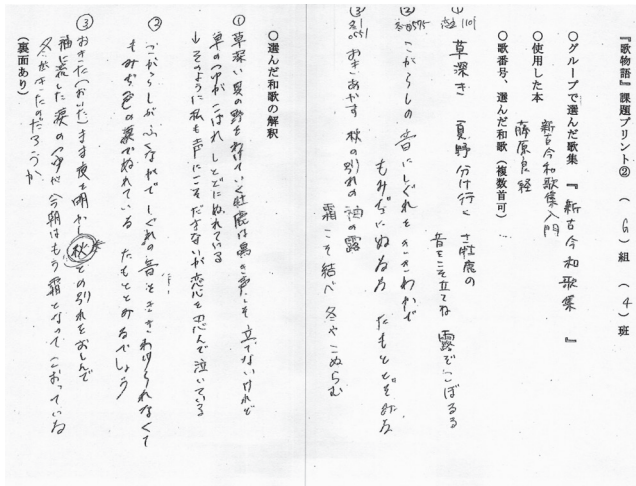 『歌物語』課題プリント② （ G ）組 （ 4 ）班
○グループで選んだ歌集 『 新古今和歌集 』
○使用した本
新古今和歌集入門
藤原良経
○歌番号、選んだ和歌（複数首可）
① 恋二 1101
草深き 夏野分け行く さ牡鹿の
音をこそ立てね 露ぞこぼるる
② 冬 575
こがらしの音にしぐれをききわかで
もみぢにぬるる たもととぞみる
③ 冬 551
おきあかす 秋の別れの 袖の露
霜こそ結べ 冬やきぬらむ
○選んだ和歌の解釈
① 草深い夏の野をわけていく牡鹿は鳴き声こそ立てないけれど
草のつゆがこぼれ しとどにぬれている
↓そのように私も声にこそださないが恋心を忍んで泣いている
② こがらしがふくなかで しぐれの音をききわけられなくて
もみぢ色の葉でぬれている たもととみるでしょう
③ おきたままで夜を明かし 秋との別れをおしんで
袖に流した涙のつゆが 今朝はもう霜となってこおっている
冬がきたのだろうか
（裏面あり）